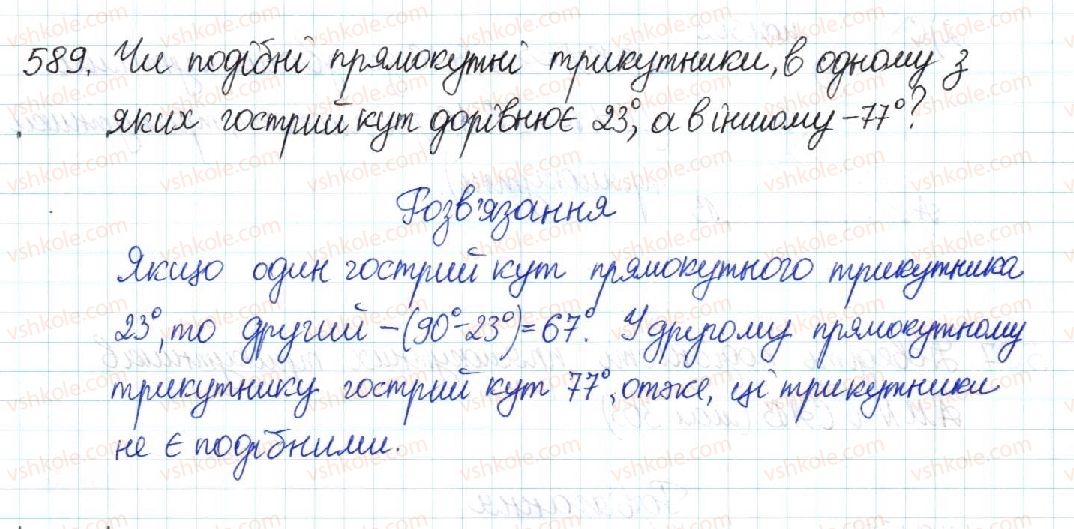 589. Чи подібні прямокутні трикутники, в одному з
яких гострий кут дорівнює 23°, а в іншому – 77°?
Розв'язання
Якщо один гострий кут прямокутного трикутника
23°, то другий – (90°-23°)=67°. У другому прямокутному
трикутнику гострий кут 77°, отже, ці трикутники
не є подібними.